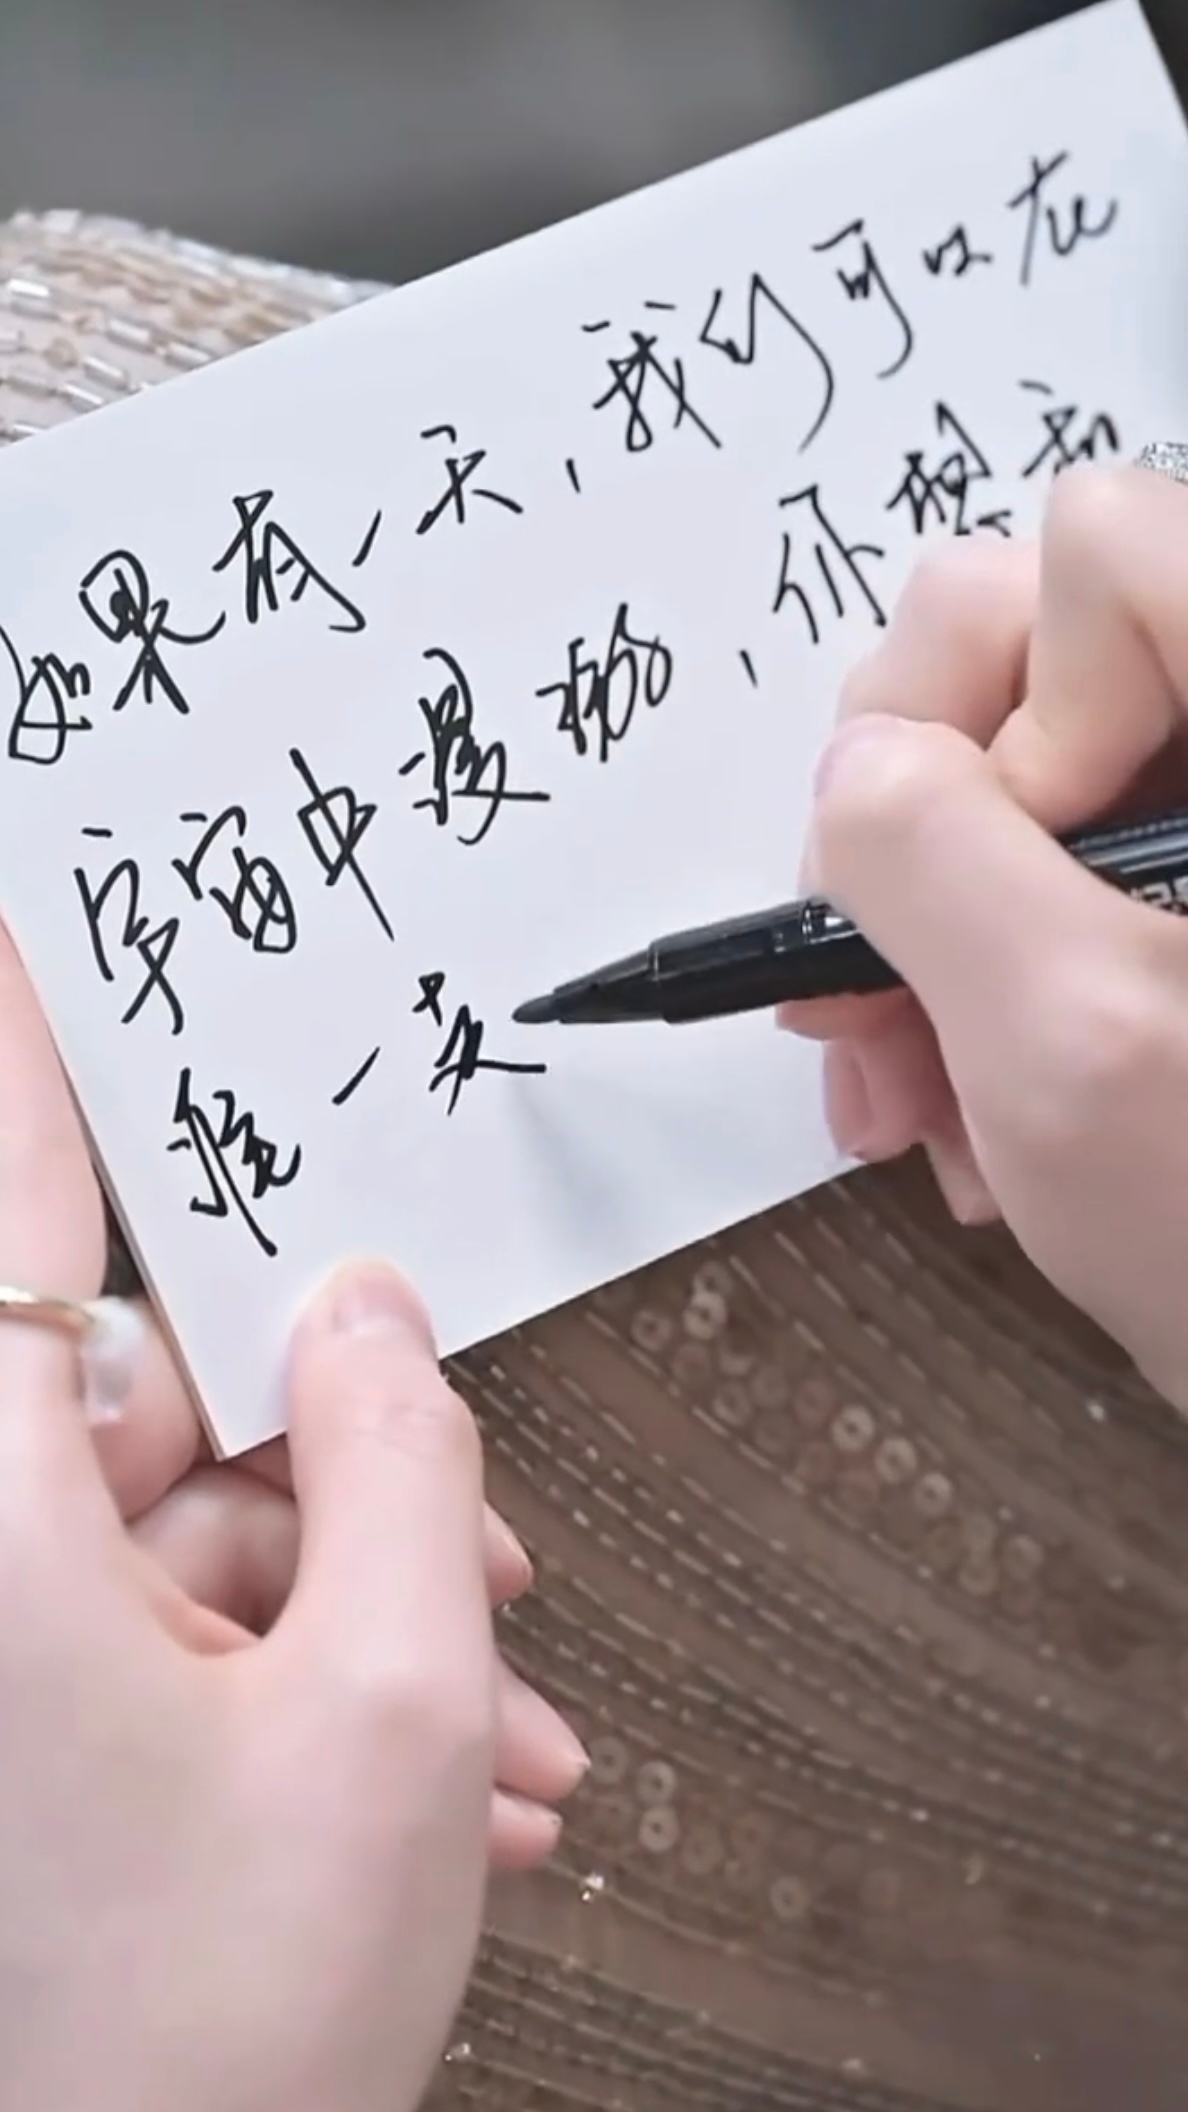 如果有一天,我们可以在
宇宙中漫游,你想和
谁一艾